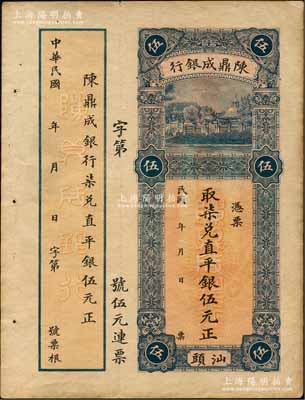 上海陽明拍賣
伍
伍
陳鼎成銀行
伍
伍
憑票
取柒兌直平銀伍元正
民 年 月 日 票
伍
伍
汕頭
字第 號伍元連票
陳鼎成銀行柒兌直平銀伍元正
中華民國 年 月 日 字第 號票根
上海陽明拍賣